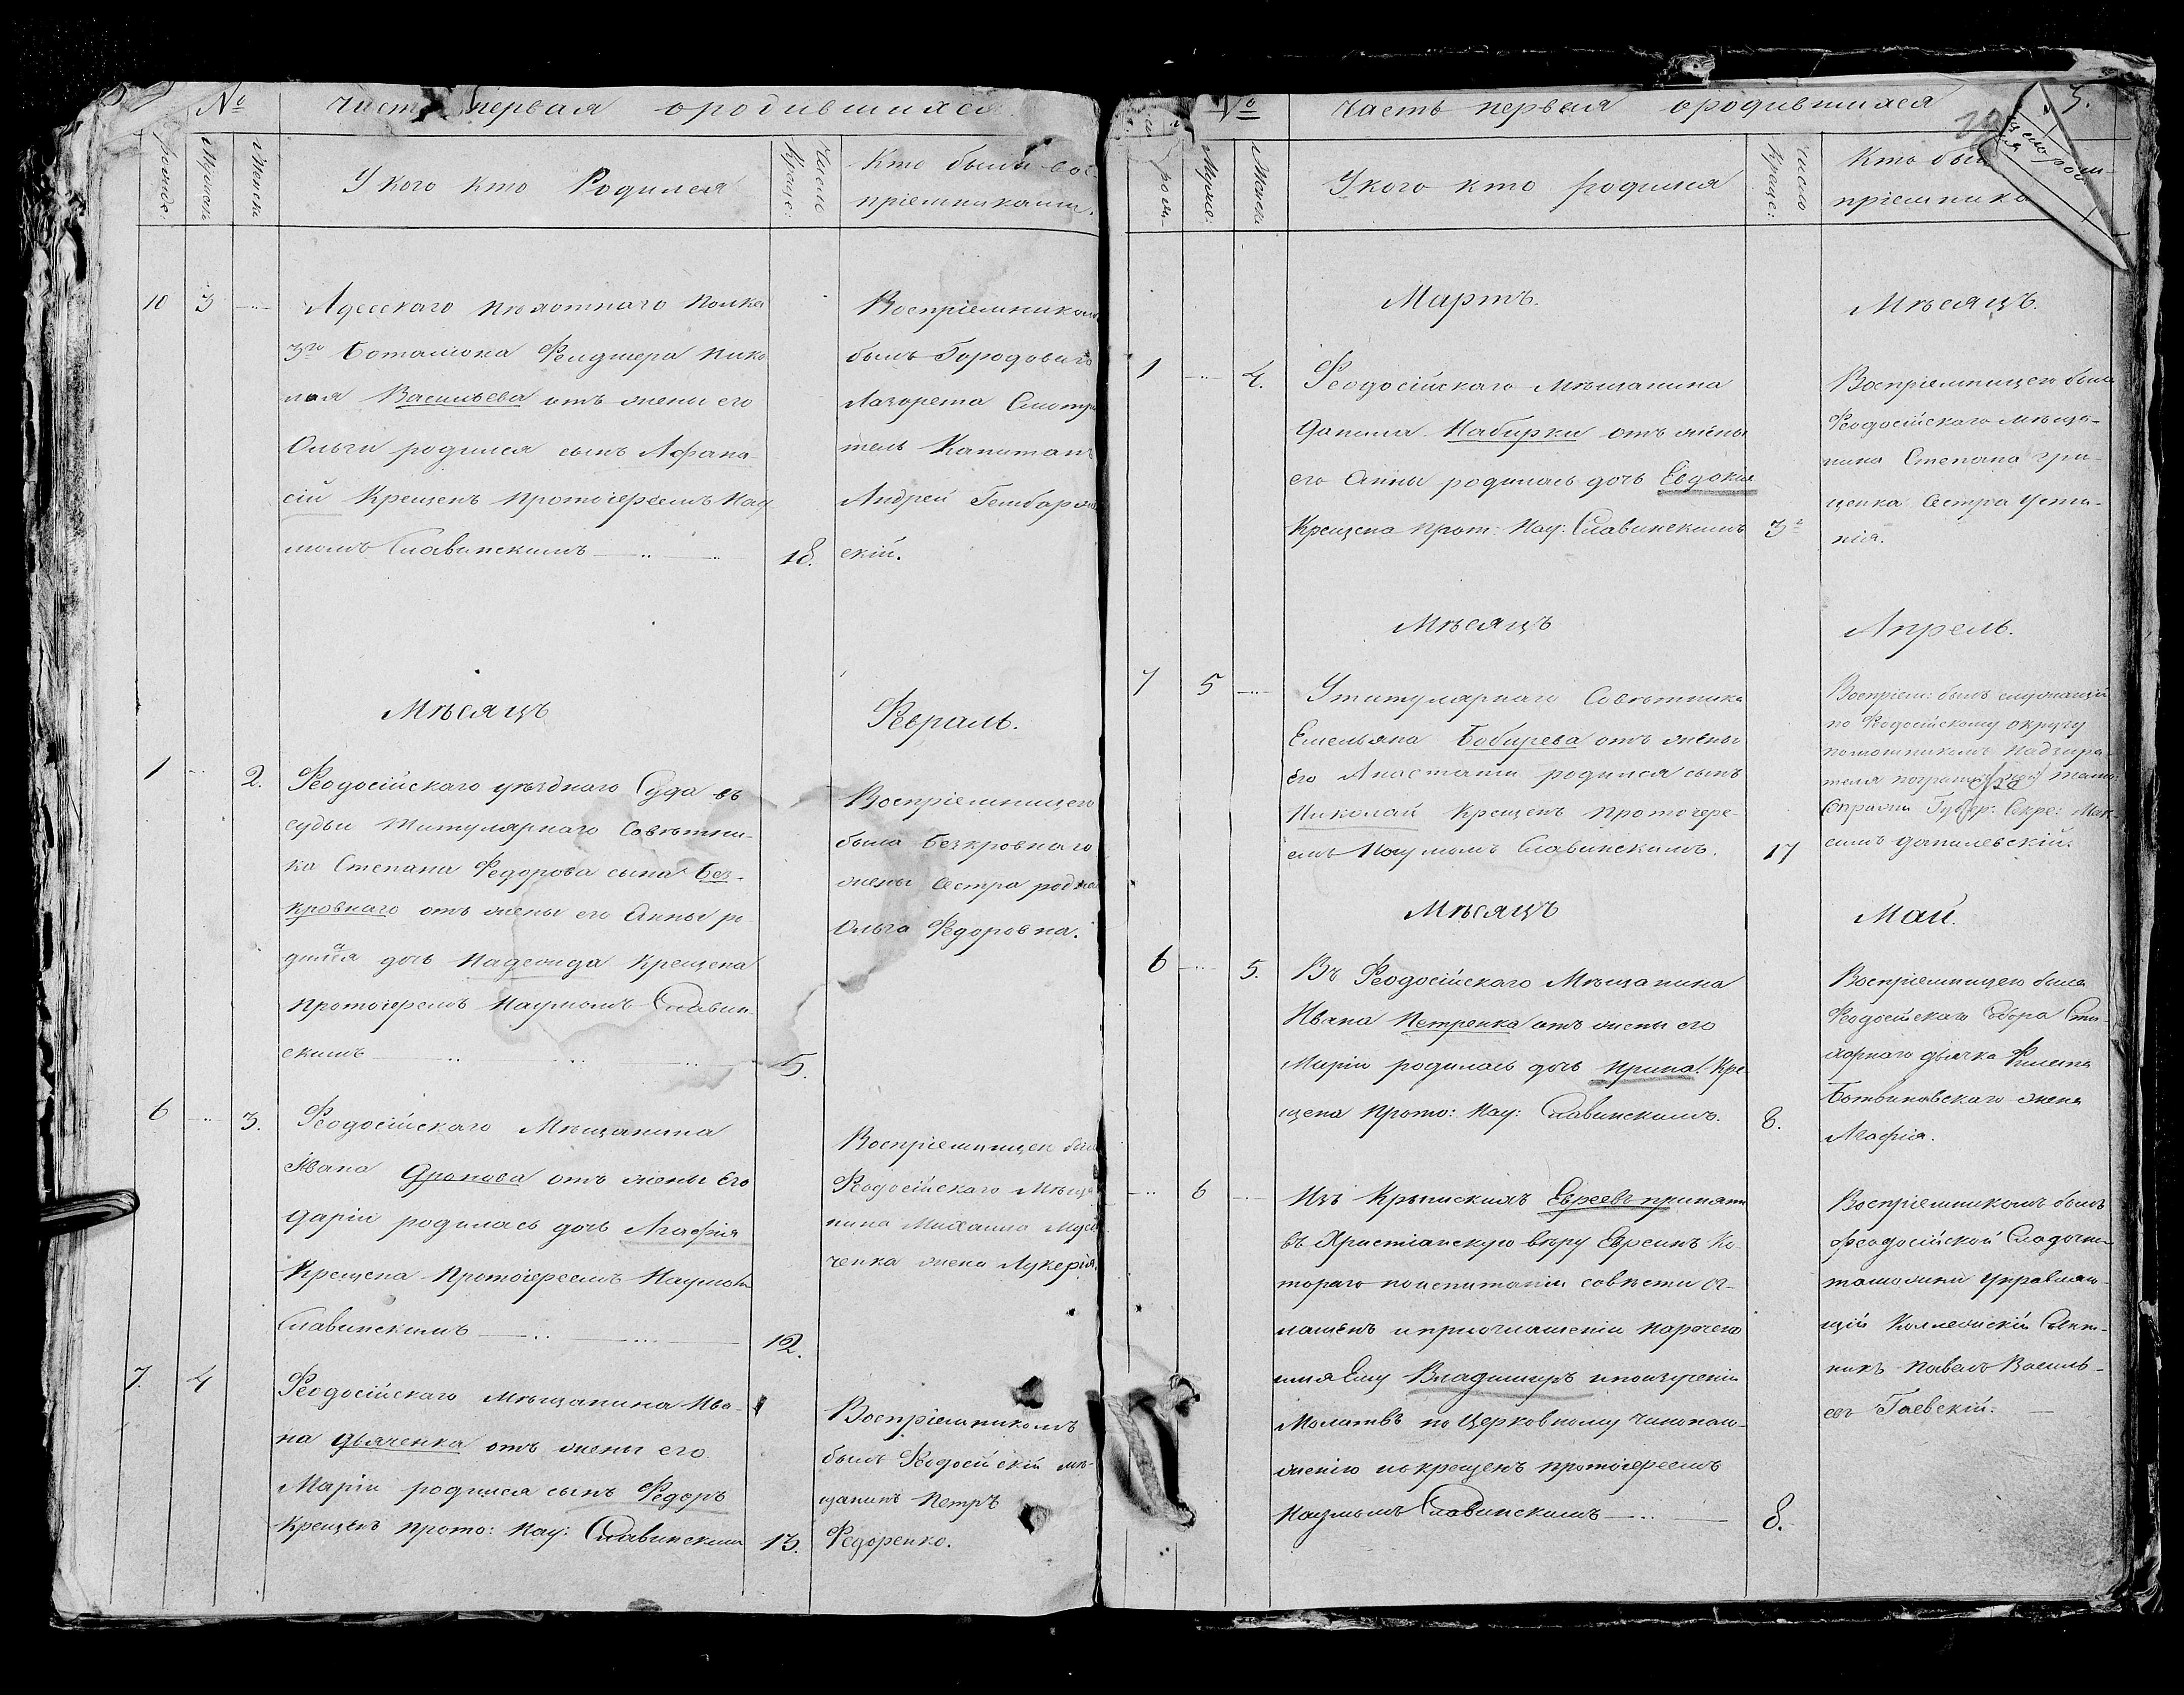 № часть первая о родившихся
рожде: Мужеск Женска
У кого кто Родился
Число Креще:
Кто были вос-
прiемниками.
10 3 Адесскаго пехотнаго полка
3го Боталiона Фелдшера Нико
лая Васильева отъ жены его
Ольги родился сынъ Афана-
сiй Крещенъ протоiереемъ Нау
момъ Славинскимъ 18.
Воспрiемникомъ
былъ Городоваго
Лазорета Смотри
тель Капитанъ
Андрей Гембарже
скiй.
Мѣсяцъ Февраль.
1 2. Феодосiйскаго уѣзднаго Суда
судьи Титулярнаго Совѣтни-
ка Степана Федорова сына Без-
кровнаго отъ жены его Анны ро
дилася дочь Надежда Крещена
протоiереемъ Наумомъ Славин
скимъ 5.
Воспрiемницею
была Безкровнаго
жены сестра родная
Ольга Федоровна.
6 3. Феодосiйскаго Мѣщанина
Ивана Дронова отъ жены Его
Дарiи родилась дочь Агафiя
Крещена Протоiереемъ Наумомъ
Славинскимъ 12.
Воспрiемницею была
Феодосiйскаго Мѣща
нина Михаила
ченка жена Лукерiя.
7. 4 Феодосiйскаго мѣщанина Ива-
на Дьяченка отъ жены его
Марiи родился сынъ Федоръ
Крещенъ прото: Нау: Славинскимъ 13.
Воспрiемникомъ
былъ Феодосiйскiй мѣ-
щанинъ Петръ
Федоренко.
№ часть первая о родившихся 3.
рож- Муже: Женска
У кого кто родился
Число Креще:
Кто был
прiемника
Мартъ. Мѣсяцъ.
1 4. Феодосiйскаго Мѣщанина
Данила Набирки отъ жены
его Анны родилась дочь Евдокiя
Крещена прот: Нау: Славинскимъ 3
Воспрiемницею была
Феодосiйскаго мѣща-
нина Степана Гри-
ценка сестра Усти-
нiя.
Мѣсяцъ Апрель.
7 5 У титулярнаго Совѣтника
Емельяна Бобирева отъ жены
Его Анастасiи родился сынъ
Николай Крещенъ Протоiере-
емъ Наумомъ Славинскимъ. 17
Воспрiем: былъ служащiй
по Феодосiйскому округу
помошникомъ Надзира-
теля погранич тамо:
стражи Губер: Секре: Мак-
симъ Данилевскiй.
Мѣсяцъ Май.
6 5. Въ Феодосiйскаго Мѣщанина
Ивана Петренка отъ жены его
Марiи родилась дочь Ирина. Кре
щена прото: Нау: Славинскимъ. 8.
Воспрiемницею была
Феодосiйскаго Собора Сти-
харнаго дьячка Филипа
Ботвиновскаго жена
Агафiя.
6 Изъ Крымскихъ Евреевъ принятъ
въ Христiанскую вѣру Евреинъ Ко-
тораго по испытанiи совѣсти ог-
лашенъ и при оглашенiи наречено
имя Ему Владимиръ и по изученiи
Молитвъ по Церковному чинополо-
женiю и крещенъ протоiереемъ
Наумомъ Славинскимъ 8.
Воспрiемникомъ былъ
Феодосiйской Складочн-
таможни управляю-
щiй Коллежскiй Совѣт-
никъ Павелъ Василь-
евъ Гаевскiй.